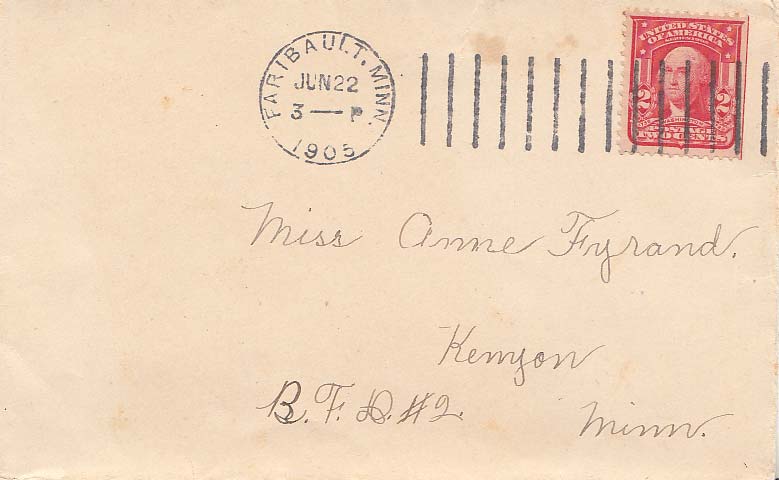 FARIBAULT, MINN.
JUN 22
3 — P
1905
UNITED STATES
OF AMERICA
2 2
WASHINGTON
POSTAGE
TWO CENTS
Miss Anne Fyrand.
Kenyon
R. F. D. #2.
Minn.